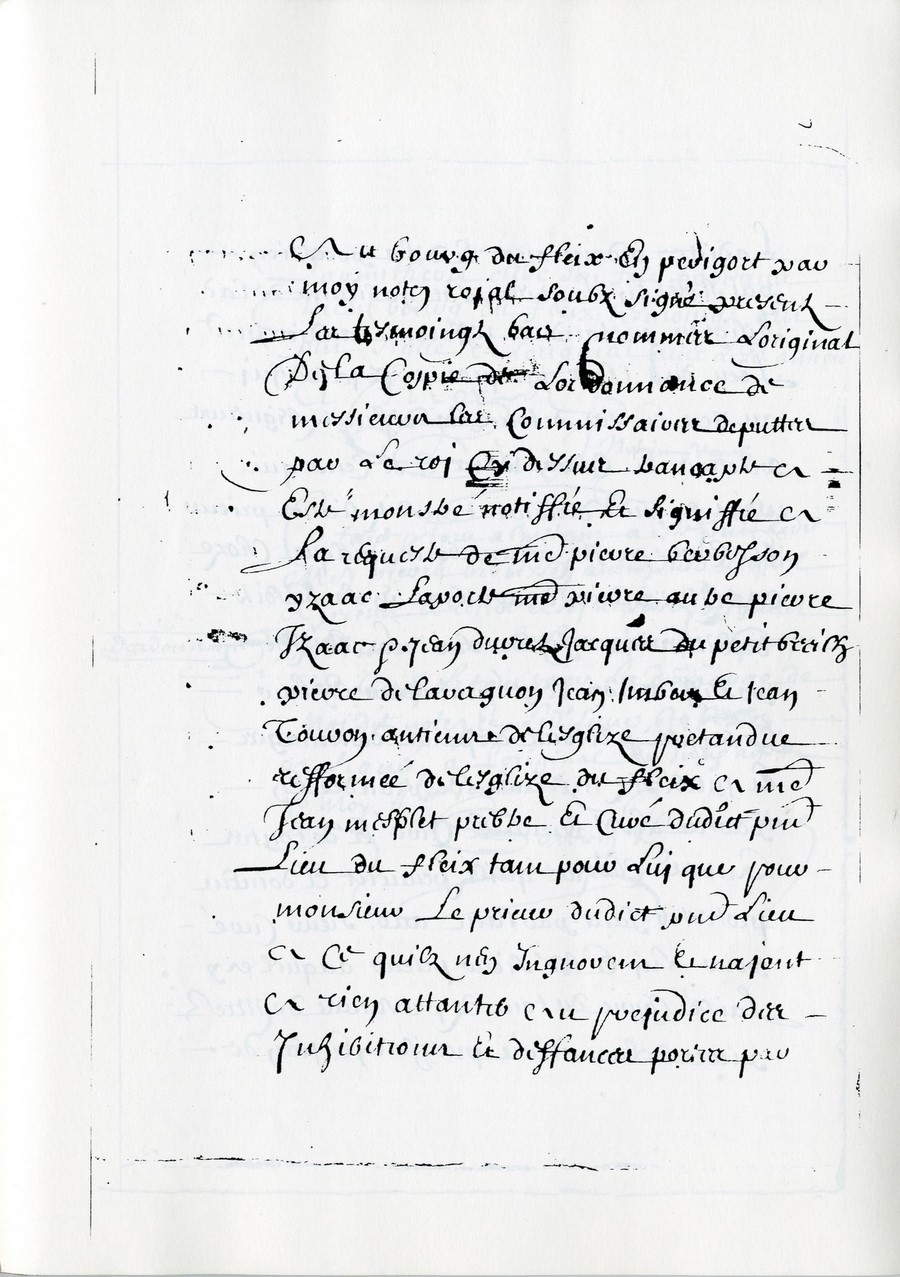 Au bourg du fleix En perigort par
moy notere roial soubz signé presens
Les tesmoingz bas nommes Loriginal
De la Coppie de Lordonnance de
messieurs les Commissaires deputtes
par Le roi Cy dessus a
Esté monstré nottiffié Et signiffié A
La requeste de me pierre
yzaac Laroche me pierre aube pierre
Izaac Jean Jacques du petit
pierre de lavagnon Jean Imbert Et Jean
Touron antiens de lesglize pretandue
refformeé de lesglize du fleix A me
Jean mesplet prebtre Et Curé dudict pnt
Lieu du fleix tam pour Lui que pour
monsieur Le prieur dudict pnt Lieu
A Ce quilz nen Ingnorent Et najent
A rien attanter Au prejudice des
Inhibitions Et deffances portees par